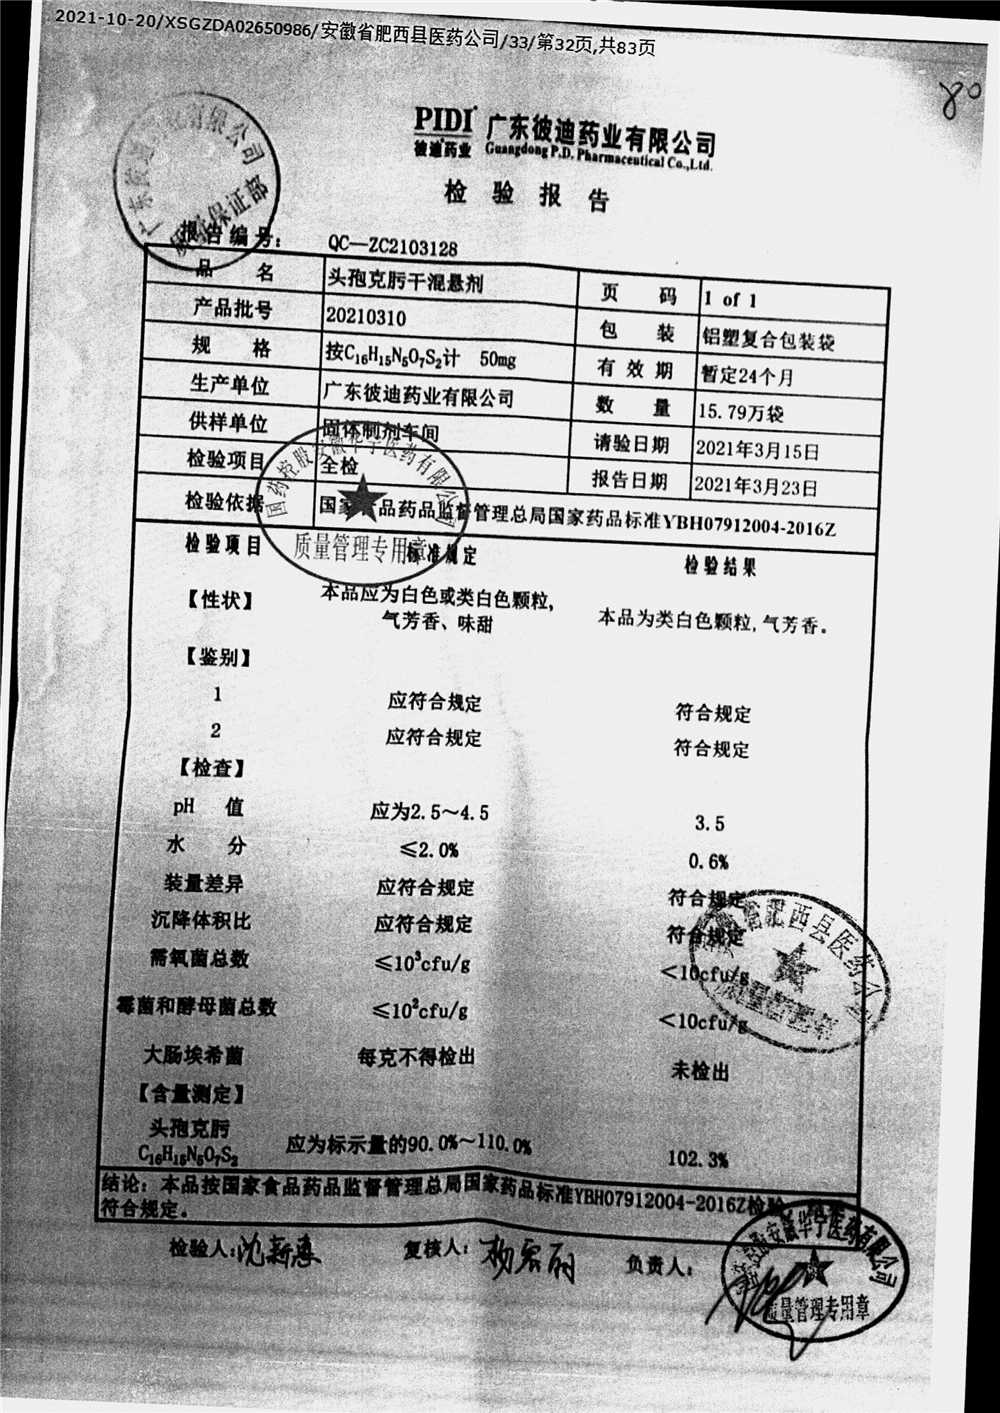 2021-10-20/XSGZDA02650986/安徽省肥西县医药公司/33/第32页,共83页
80
PIDI 广东彼迪药业有限公司
彼迪药业 Guangdong P.D. Pharmaceutical Co.,Ltd.
检验报告
广东彼迪药业有限公司
质量保证部
报告编号： QC—ZC2103128
品 名 头孢克肟干混悬剂 页 码 1 of 1
产品批号 20210310 包 装 铝塑复合包装袋
规 格 按C₁₆H₁₅N₅O₇S₂计 50mg 有效期 暂定24个月
生产单位 广东彼迪药业有限公司 数 量 15.79万袋
供样单位 固体制剂车间 请验日期 2021年3月15日
检验项目 全检 报告日期 2021年3月23日
检验依据 国家食品药品监督管理总局国家药品标准YBH07912004-2016Z
国药控股安徽华宁医药有限公司
质量管理专用章
检验项目 标准规定 检验结果
【性状】 本品应为白色或类白色颗粒,
气芳香、味甜 本品为类白色颗粒,气芳香。
【鉴别】
1 应符合规定 符合规定
2 应符合规定 符合规定
【检查】
pH 值 应为2.5～4.5 3.5
水 分 ≤2.0% 0.6%
装量差异 应符合规定 符合规定
沉降体积比 应符合规定 符合规定
需氧菌总数 ≤10³cfu/g <10cfu/g
霉菌和酵母菌总数 ≤10²cfu/g <10cfu/g
大肠埃希菌 每克不得检出 未检出
安徽省肥西县医药公司
【含量测定】
头孢克肟
C₁₆H₁₅N₅O₇S₂ 应为标示量的90.0%～110.0% 102.3%
结论：本品按国家食品药品监督管理总局国家药品标准YBH07912004-2016Z检验
符合规定。
检验人： 复核人： 负责人：
国药控股安徽华宁医药有限公司
质量管理专用章